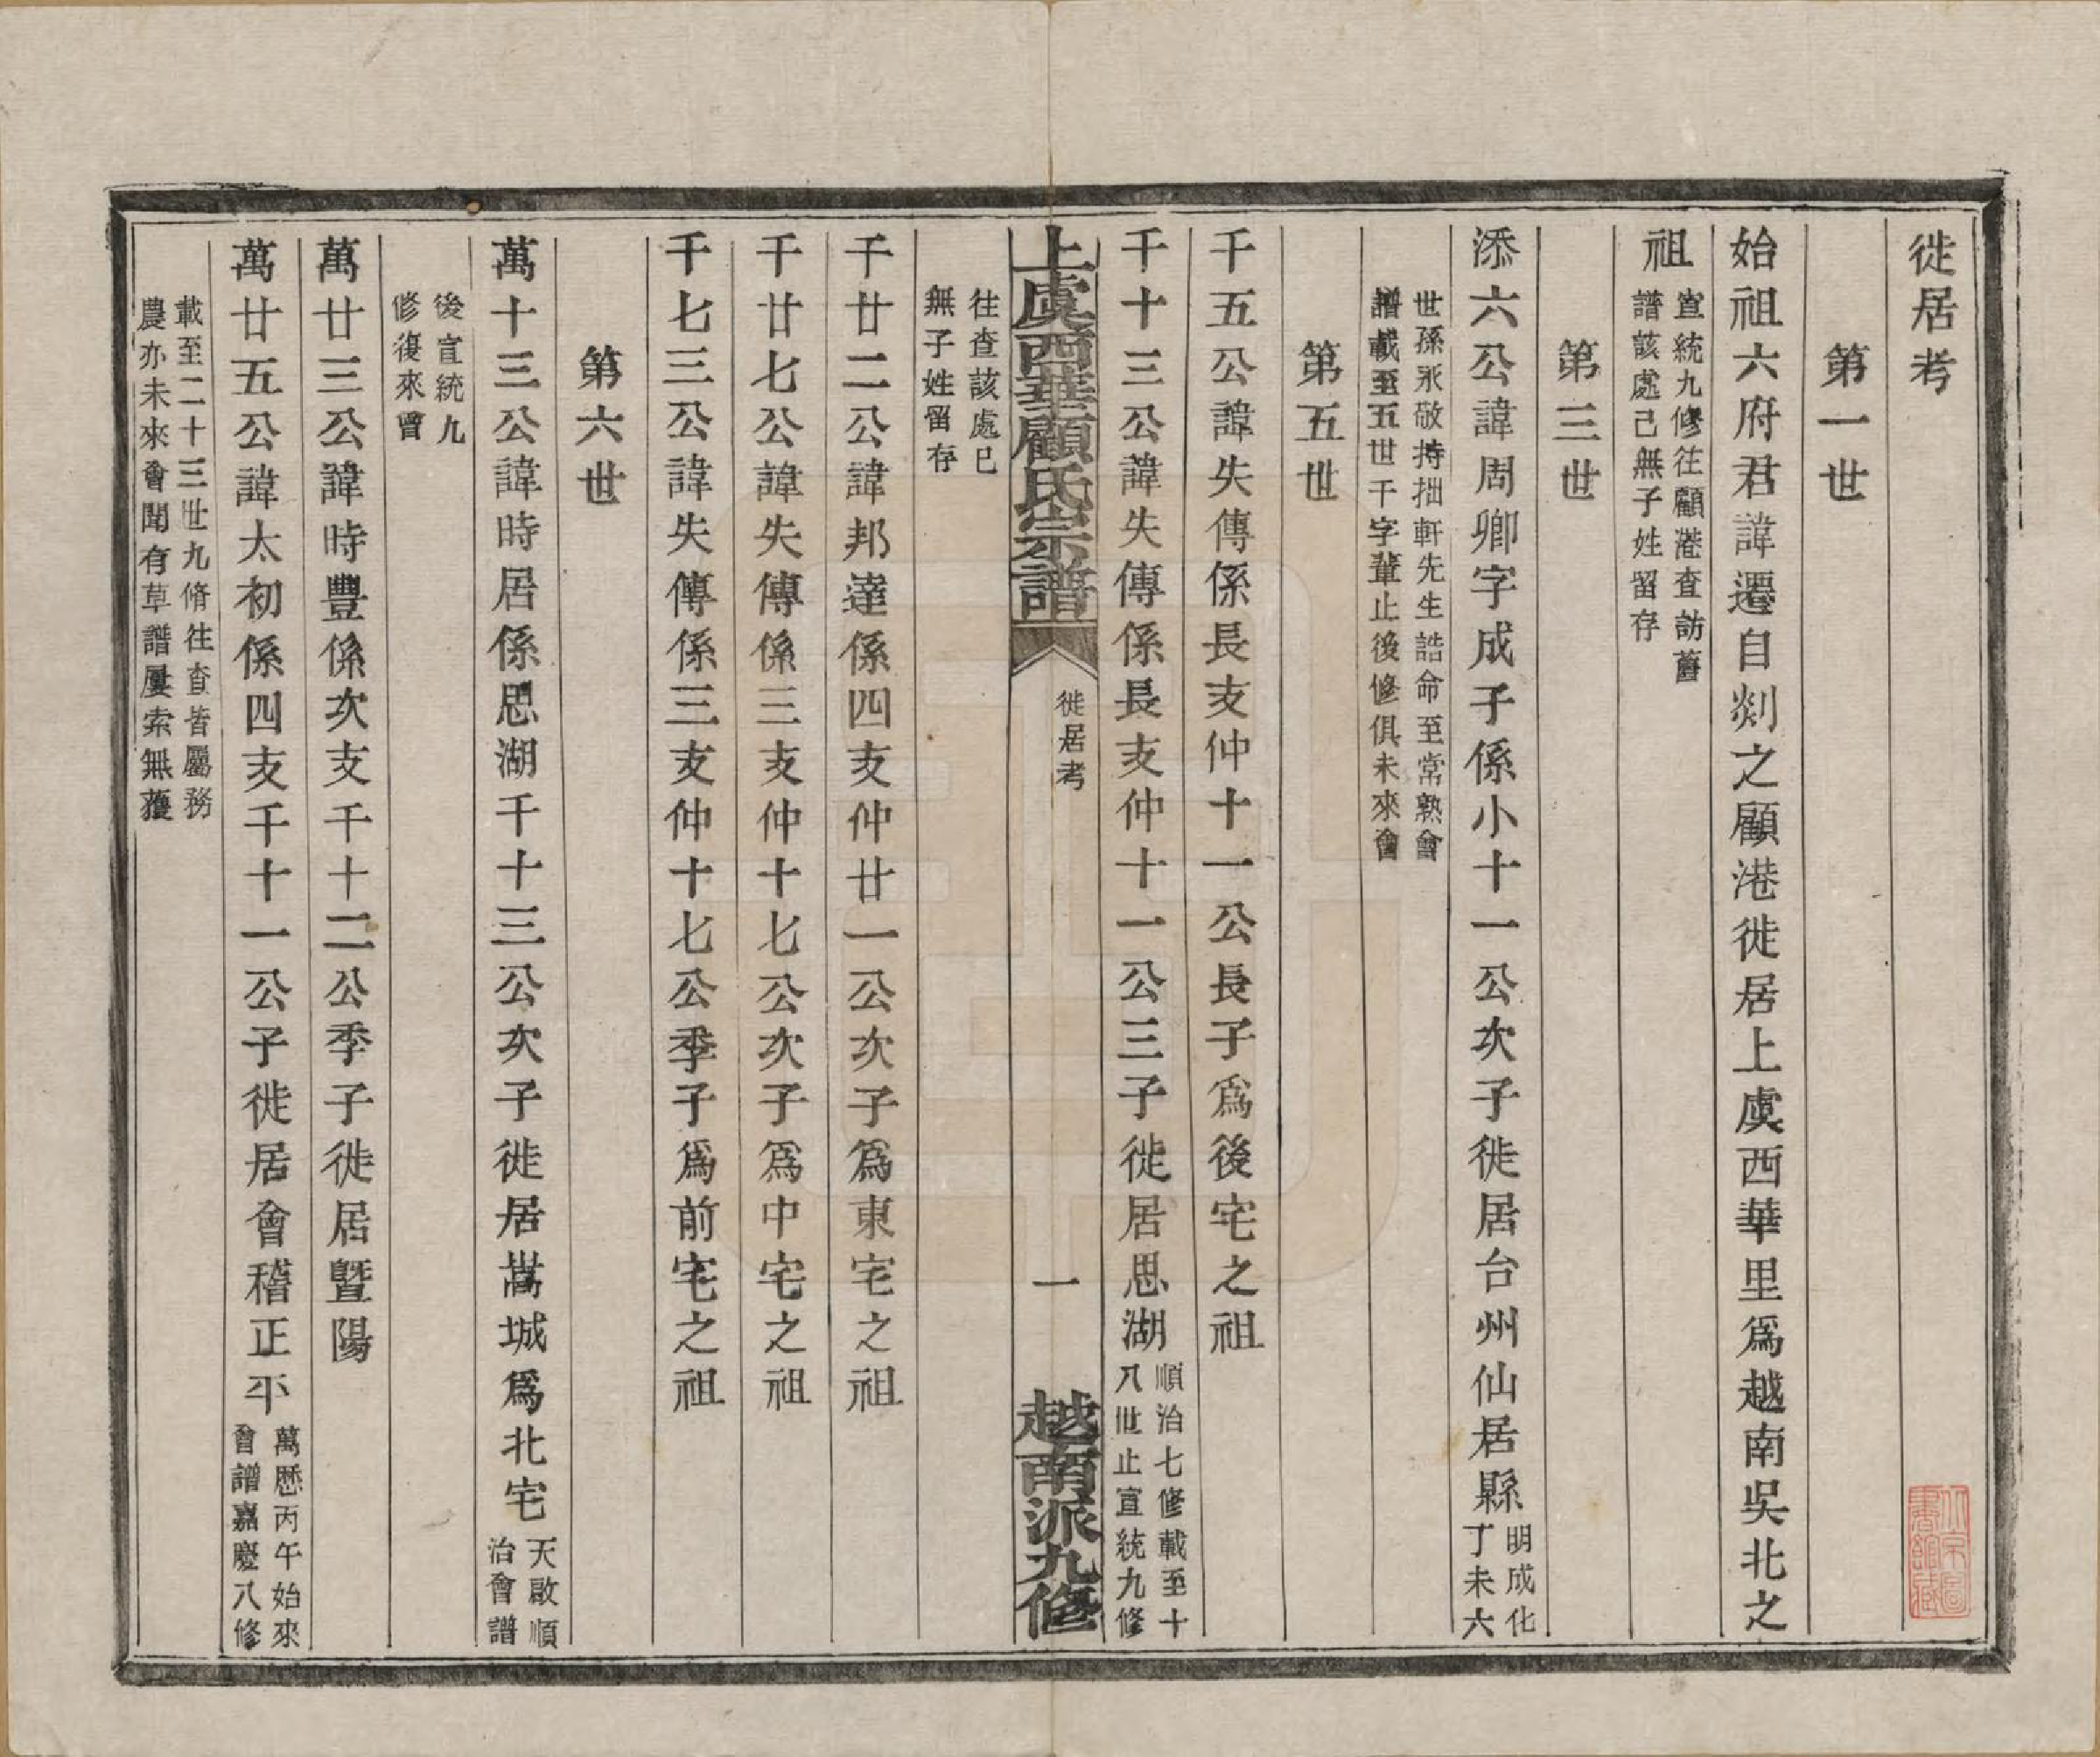 徙居考
第一世
始祖六府君諱遷自剡之顧港徙居上虞西華里爲越南吳北之
祖
宣統九修往顧港查訪舊
譜該處已無子姓留存
第三世
添六公諱周卿字成子係小十一公次子徙居台州仙居縣
明成化
丁未六
世孫永敬持拙軒先生誥命至常熟會
譜載至五世千字輩止後修俱未來會
第五世
千五公諱失傳係長支仲十一公長子爲後宅之祖
千十三公諱失傳係長支仲十一公三子徙居思湖
順治七修載至十
八世止宣統九修
上虞西華顧氏宗譜
徙居考
一
越南派九修
往查該處已
無子姓留存
千廿二公諱邦達係四支仲廿一公次子爲東宅之祖
千廿七公諱失傳係三支仲十七公次子爲中宅之祖
千七三公諱失傳係三支仲十七公季子爲前宅之祖
第六世
萬十三公諱時居係思湖千十三公次子徙居嵩城爲北宅
天啟順
治會譜
後宣統九
修復來會
萬廿三公諱時豐係次支千十二公季子徙居暨陽
萬廿五公諱太初係四支千十一公子徙居會稽正平
萬厯丙午始來
會譜嘉慶八修
載至二十三世九脩往查皆屬務
農亦未來會聞有草譜屢索無獲